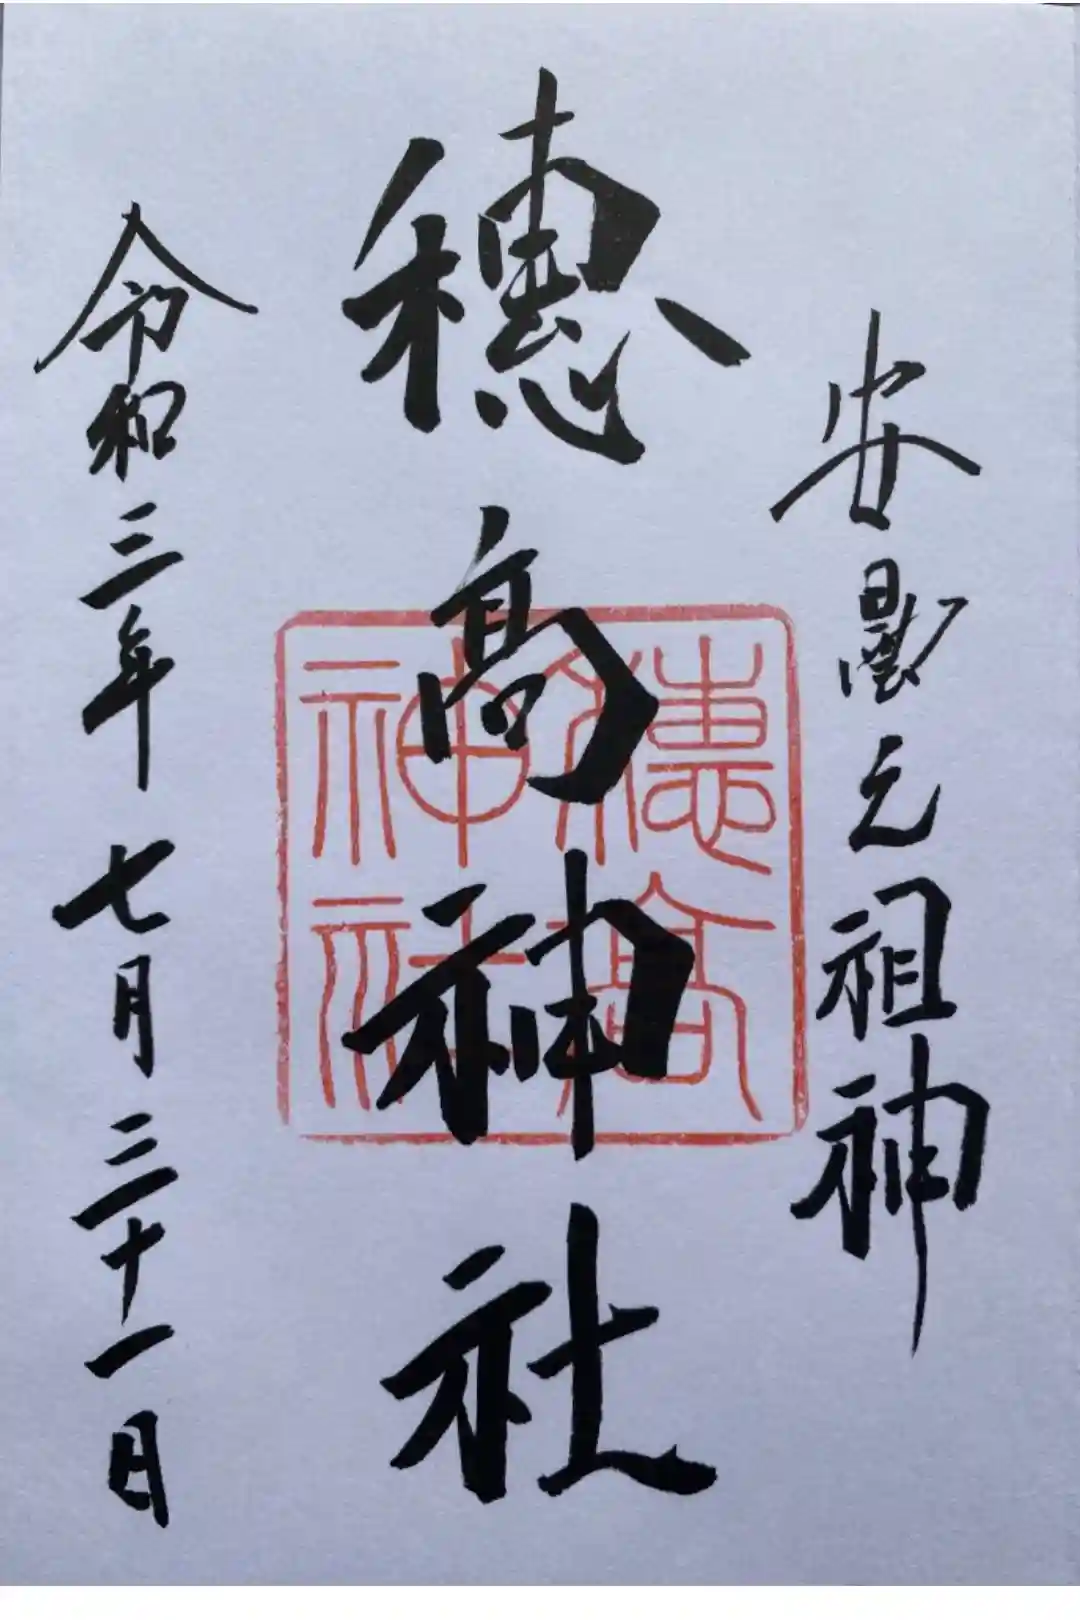 安曇元祖神
穂高神社
穂高神社
令和三年七月三十一日